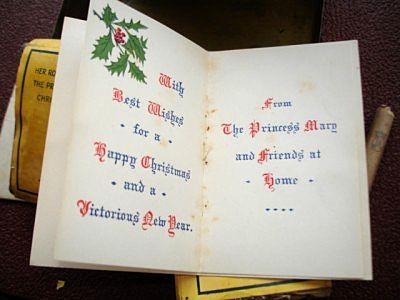 With
Best Wishes
for a
Happy Christmas
and a
Victorious New Year.
From
The Princess Mary
and Friends at
Home
HER RO
THE PR
CHRI